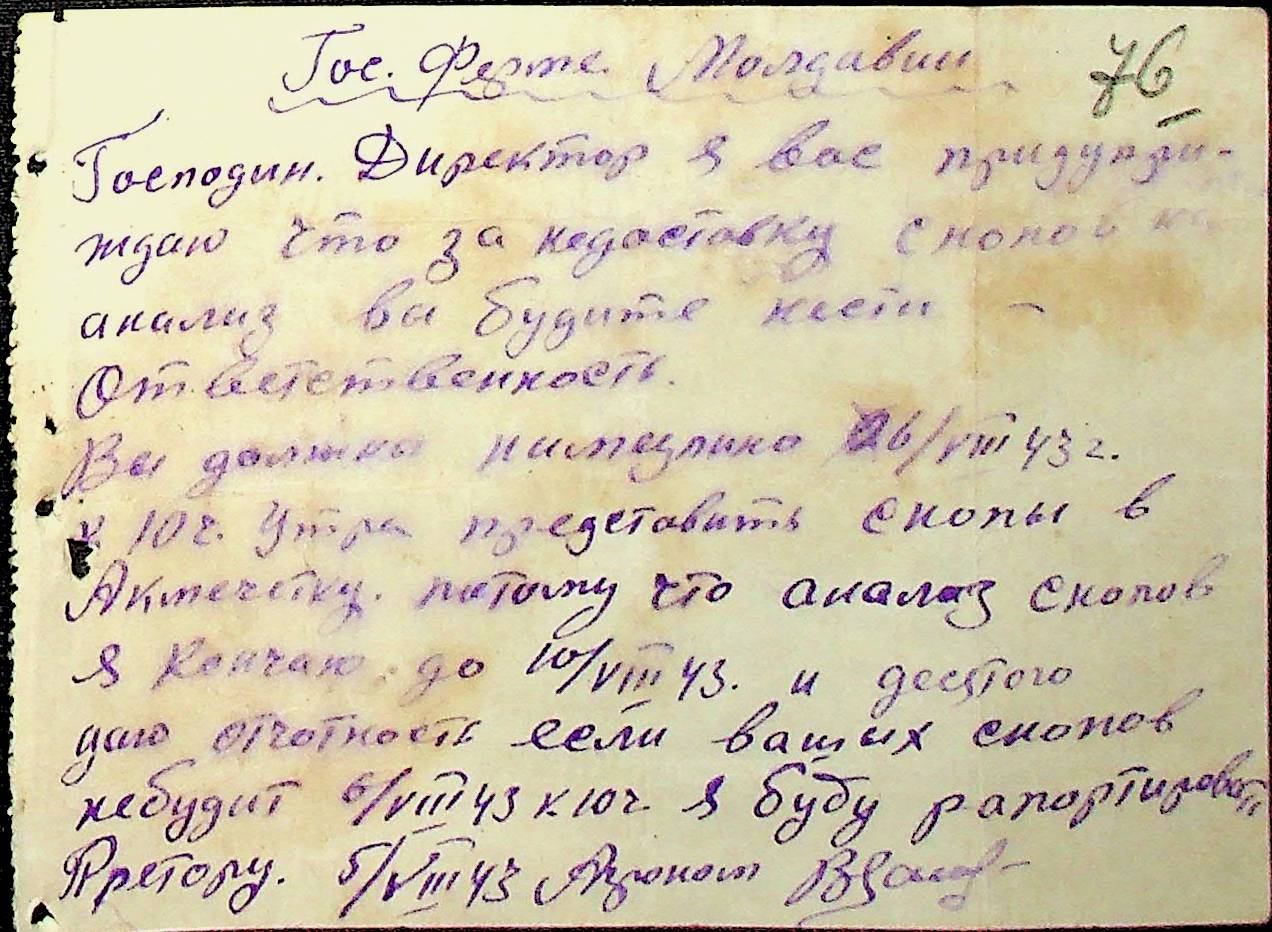 Гос. Ферме. Молдавии 76
Господин. Директор я вас придупри-
ждаю что за недоставку снопов на
анализ вы будите нести -
Ответственность.
Вы должны нимедлино 6/VIII 43 г.
к 10 ч. Утра представить снопы в
Акмечетку. потому что анализ снопов
я кончаю до 10/VIII 43. и десятого
даю отчотность если ваших снопов
небудит 6/VIII 43 к 10 ч. я буду рапортировать
Претору. 5/VIII 43 Агроном